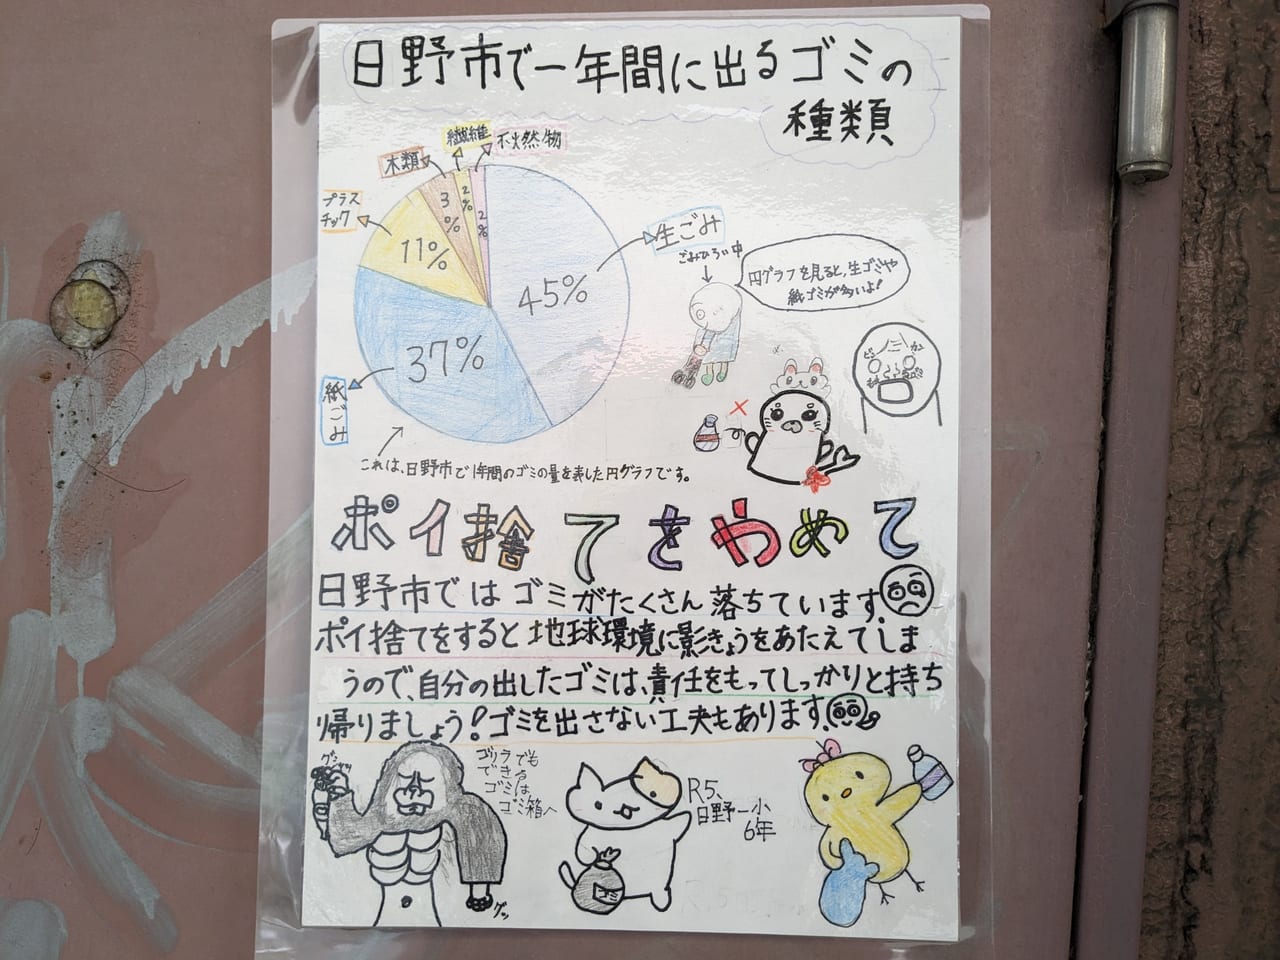 日野市で一年間に出るゴミの
種類
繊維
不火然物
木類
プラス
チック
3%
2%
2%
11%
45%
37%
生ごみ
紙ごみ
ごみひろい中
円グラフを見ると、生ゴミや
紙ゴミが多いよ!
これは、日野市で1年間のゴミの量を表した円グラフです。
ポイ捨てをやめて
日野市ではゴミがたくさん落ちています。
ポイ捨てをすると地球環境に影きょうをあたえてしま
うので、自分の出したゴミは、責任をもってしっかりと持ち
帰りましょう!ゴミを出さない工夫もあります。
グシャッ
ゴリラでも
できる
ゴミは
ゴミ箱へ
グッ
ゴミ
R5、
日野一小
6年